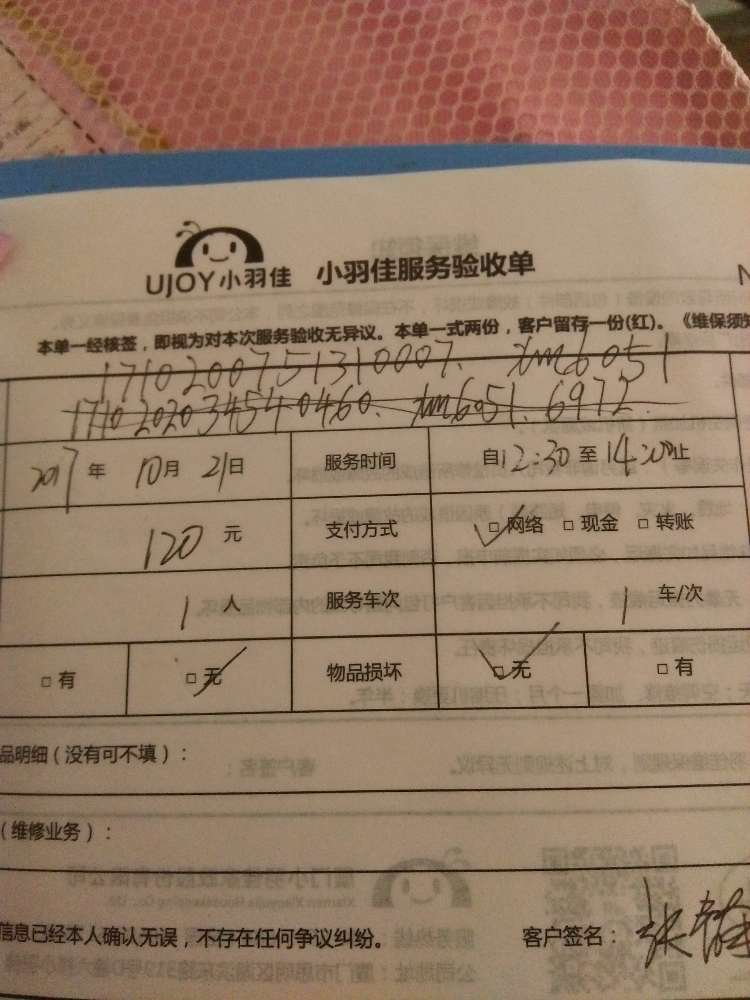 UJOY小羽佳 小羽佳服务验收单
本单一经核签，即视为对本次服务验收无异议。本单一式两份，客户留存一份(红)。《维保须知
1710200751310007. xm6051
17102020345540460. xm6051.6972.
2017年 10月 21日 服务时间 自12:30至14:20止
120元 支付方式 □网络 □现金 □转账
1人 服务车次 1 车/次
□有 □无 物品损坏 □无 □有
品明细（没有可不填）：
（维修业务）：
信息已经本人确认无误，不存在任何争议纠纷。 客户签名：张